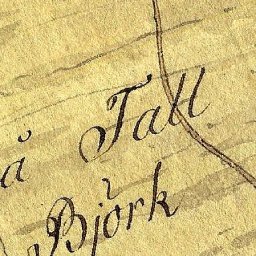 å Tall
Björk